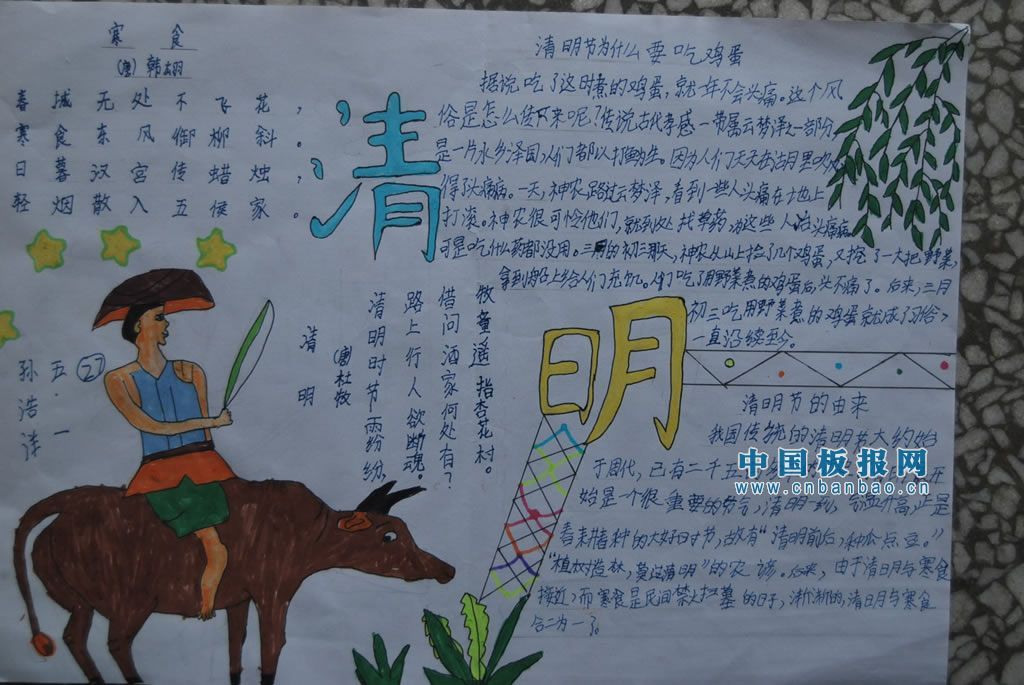 寒食
(唐)韩翃
春城无处不飞花，
寒食东风御柳斜。
日暮汉宫传蜡烛，
轻烟散入五侯家。
清
明
清明节为什么要吃鸡蛋
据说吃了这时煮的鸡蛋，就一年不会头痛。这个风
俗是怎么传下来呢？传说古代孝感一带属云梦泽之一部分
是一片水乡泽国，人们都以打鱼为生。因为人们天天在湖里
得了头痛病。一天，神农路过云梦泽，看到一些人头痛在地上
打滚。神农很可怜他们，就到处找草药为这些人治头痛病
可是吃什么药都没用。三月的初三那天，神农从山上捡了几个鸡蛋，又挖了一大把野菜，
拿到给人们充饥。人们吃了用野菜煮的鸡蛋后，头不痛了。后来，三月
初三吃用野菜煮的鸡蛋就成了习俗，
一直沿续至今。
清明
(唐)杜牧
清明时节雨纷纷，
路上行人欲断魂。
借问酒家何处有？
牧童遥指杏花村。
五·一
㉗
孙浩洋
清明节的由来
我国传统的清明节大约始
于周代，已有二千五
始是个很重要的节令，清明一到，升高，正是
春耕春种的大好时节，故有“清明前后，种瓜点豆。”
“植树造林，莫过清明”的农谚。后来，由于清明与寒食
接近，而寒食是民间禁火扫墓的日子，渐渐的，清明与寒食
合二为一了。
中国板报网
www.cnbanbao.cn